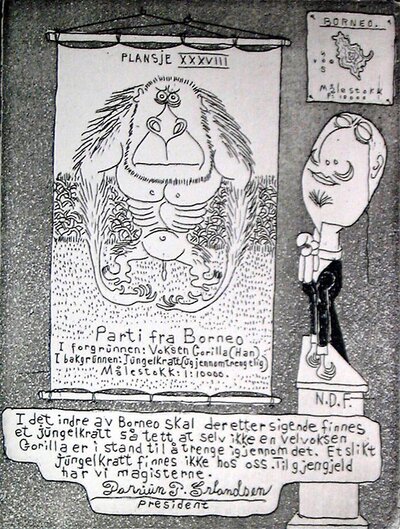 PLANSJE XXXVIII
BORNEO.
Målestokk
1:10000.
Parti fra Borneo
I forgrünnen: Voksen Gorilla (Han)
I bakgrünnen: Jüngelkratt (ügjennomtrengelig)
Målestokk: 1:10000.
N.D.F.
I det indre av Borneo skal der etter sigende finnes
et Jüngelkratt så tett at selv ikke en velvoksen
Gorilla er i stand til å trenge igjennom det. Et slikt
Jüngelkratt finnes ikke hos oss. Til gjengjeld
har vi magisterne.
Darwin P. Erlandsen
President